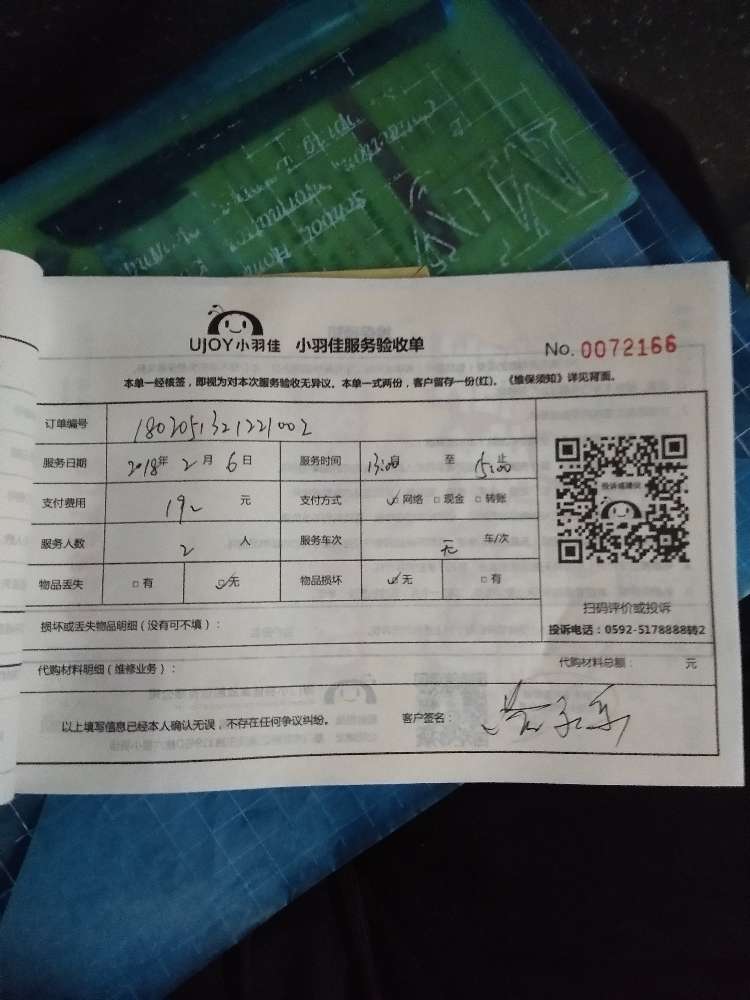 UJOY小羽佳 小羽佳服务验收单 No. 0072166
本单一经核签，即视为对本次服务验收无异议。本单一式两份，客户留存一份(红)。《维保须知》详见背面。
订单编号 1802051321221002
服务日期 2018年 2月 6日 服务时间 13:00 自 至 15:00 止
支付费用 192 元 支付方式 ☑网络 □现金 □转账
服务人数 2 人 服务车次 无 车/次
物品丢失 □有 ☑无 物品损坏 ☑无 □有
损坏或丢失物品明细（没有可不填）：
投诉或建议
扫码评价或投诉
投诉电话：0592-5178888转2
代购材料明细（维修业务）： 代购材料总额： 元
以上填写信息已经本人确认无误，不存在任何争议纠纷。 客户签名：